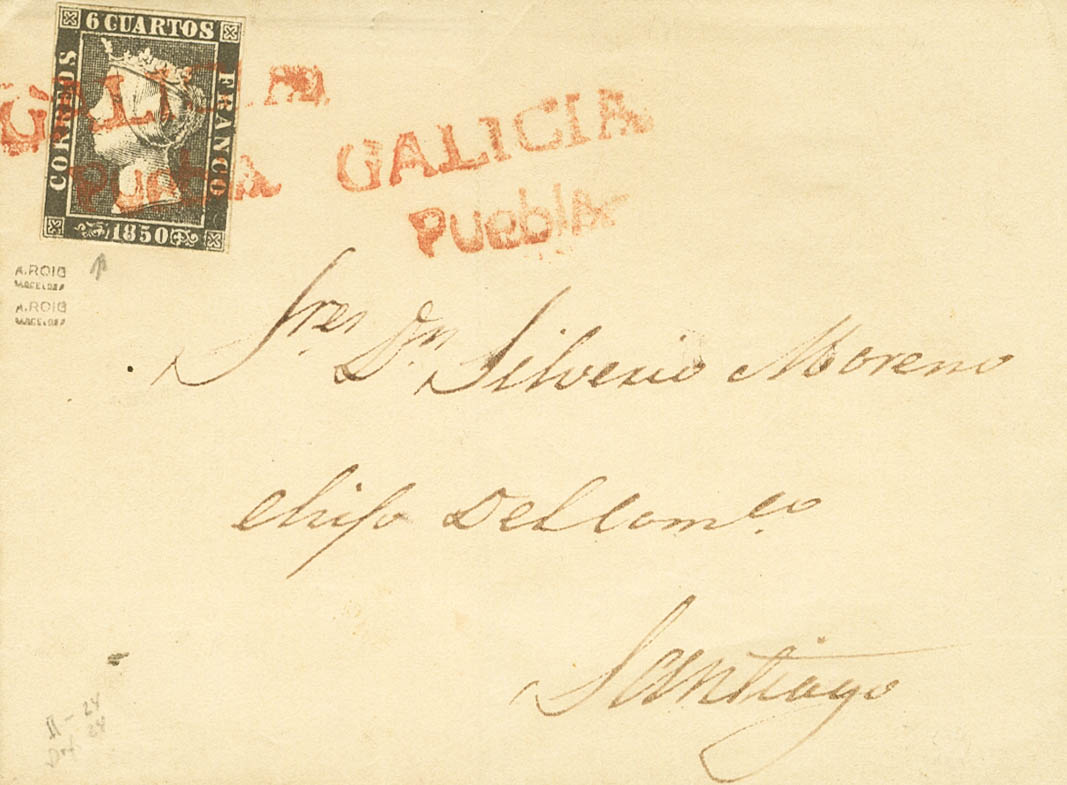 6 CUARTOS
CORREOS
FRANCO
1850
GALICIA
Puebla
GALICIA
PueblA
A.ROIG
BARCELONA
A.ROIG
BARCELONA
Sres. Dn. Silverio Moreno
è hijo Del Comcio.
Santiago
II - 24
24